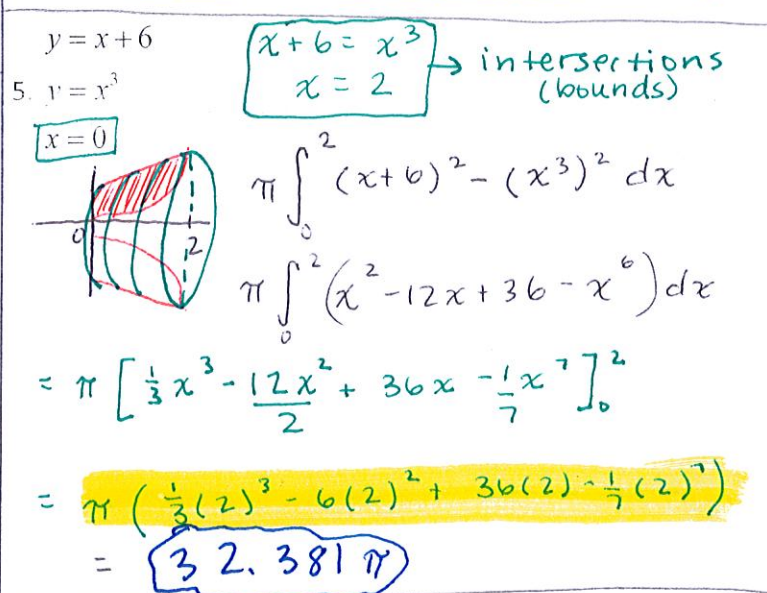 y = x + 6
5. y = x³
x = 0
x + 6 = x³
x = 2
→ intersections
(bounds)
0 2
π ∫₀² (x+6)² - (x³)² dx
π ∫₀² (x² - 12x + 36 - x⁶) dx
= π [ 1/3 x³ - 12x²/2 + 36x - 1/7 x⁷ ]₀²
= π ( 1/3 (2)³ - 6(2)² + 36(2) - 1/7 (2)⁷ )
= 32.381 π